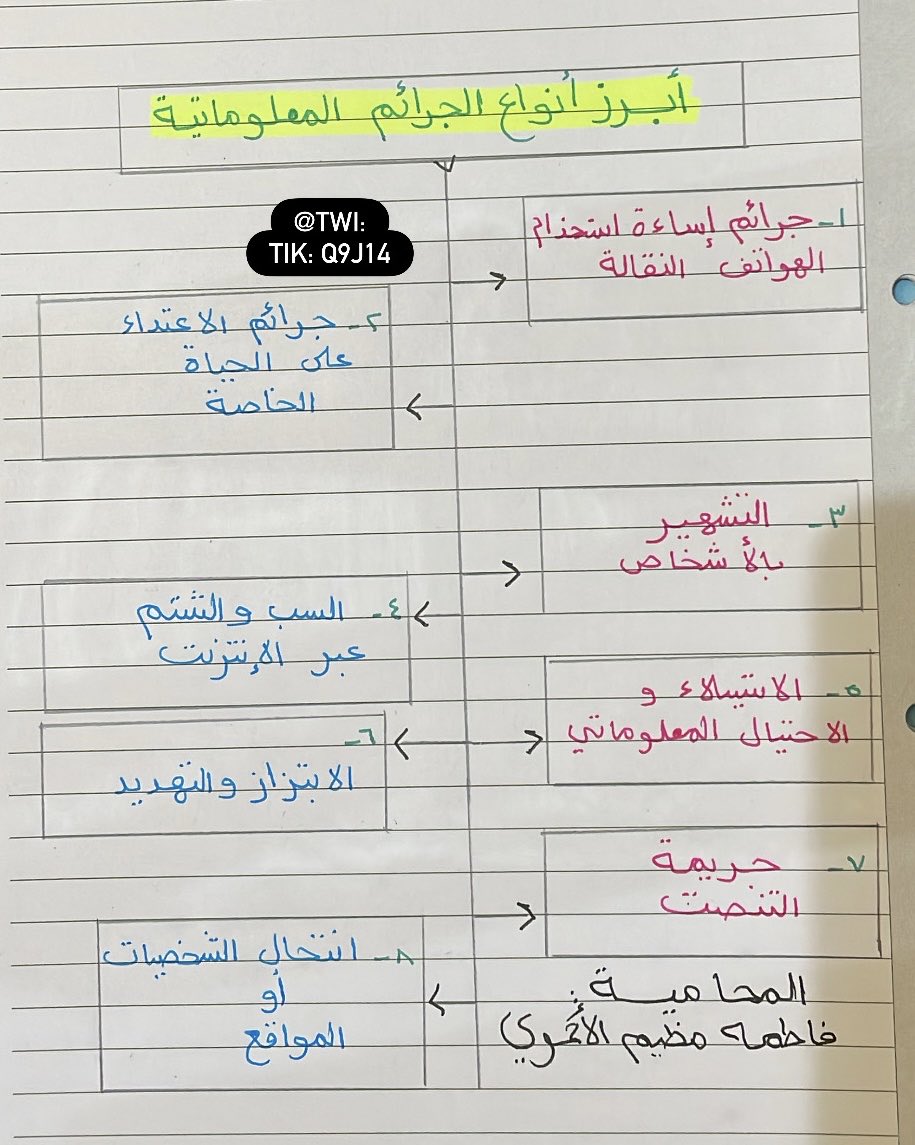 أبرز أنواع الجرائم المعلوماتية
@TWI:
TIK: Q9J14
١- جرائم إساءة استخدام
الهواتف النقالة
٢- جرائم الاعتداء
على الحياة
الخاصة
٣- التشهير
بالأشخاص
٤- السب والشتم
عبر الإنترنت
٥- الاستيلاء و
الاحتيال المعلوماتي
٦-
الابتزاز والتهديد
٧- جريمة
التنصت
٨- انتحال الشخصيات
أو
المواقع
المحامية:
فاطمه مطيع الأحمري